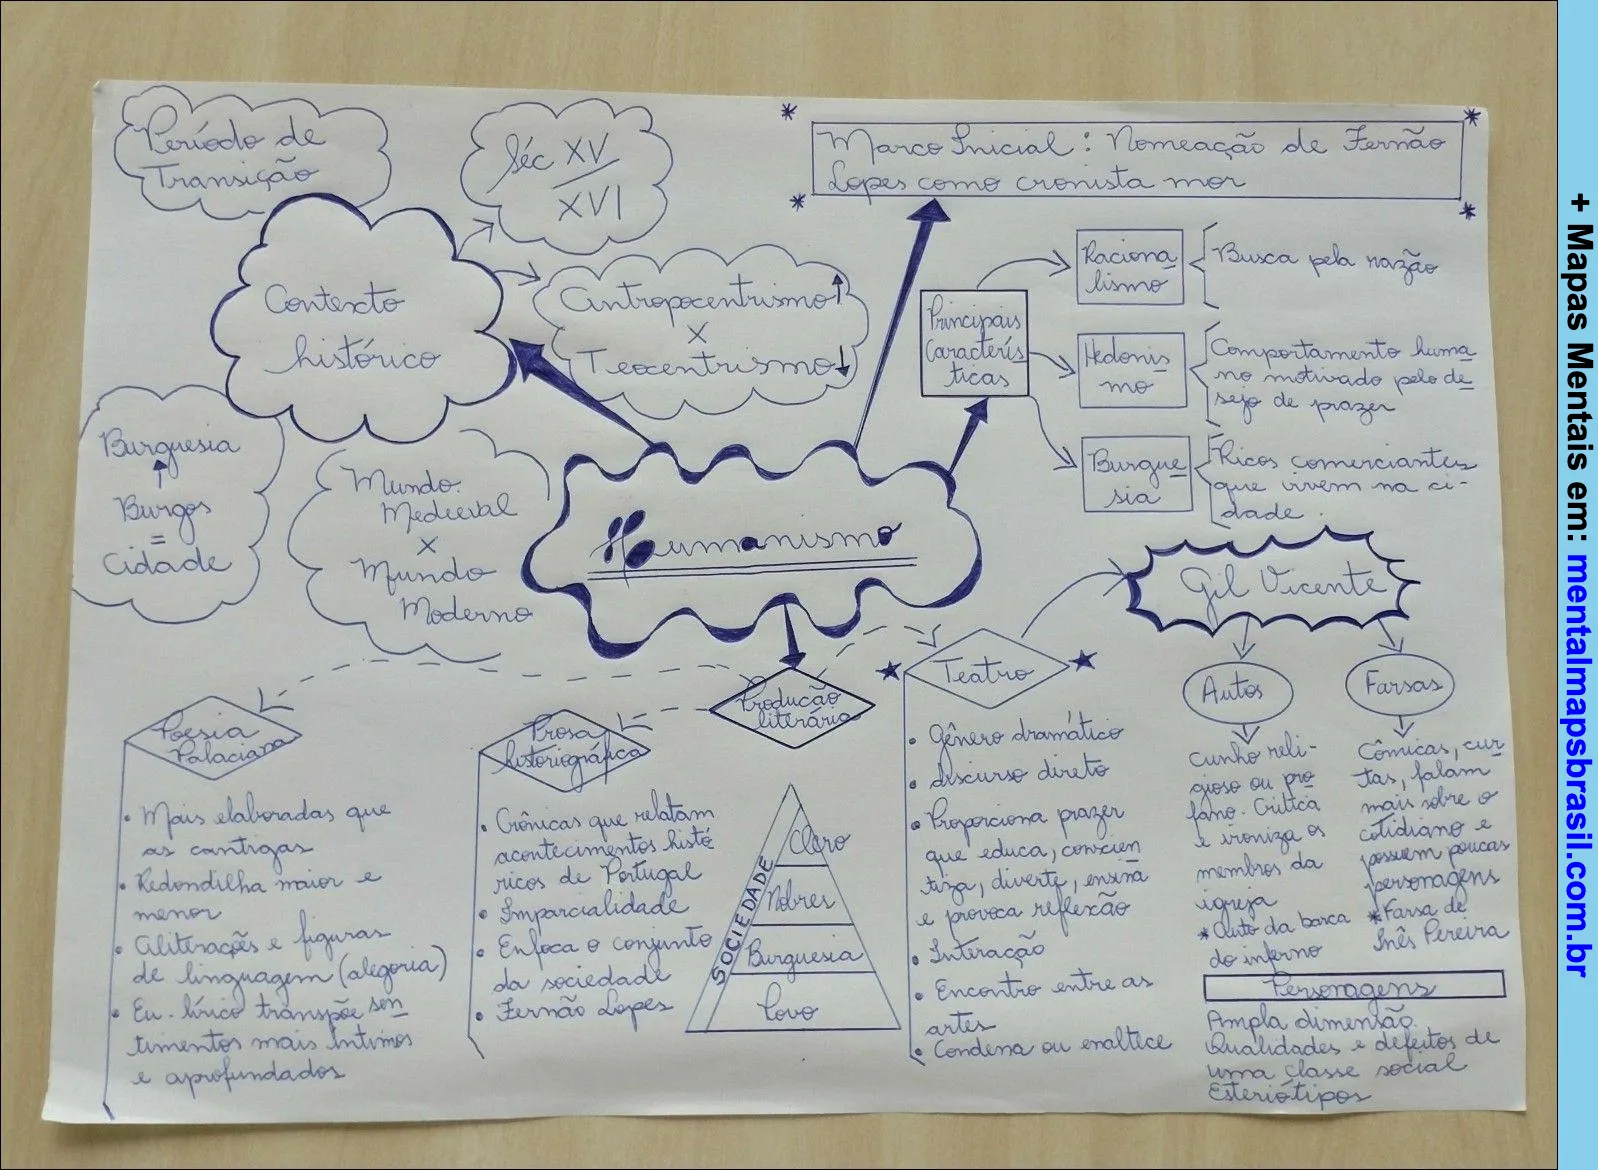 Período de
Transição
Séc XV
XVI
* Marco Inicial: Nomeação de Fernão *
* Lopes como cronista mor *
Contexto
histórico
Antropocentrismo ↑
X
Teocentrismo ↓
Burguesia
↑
Burgos
=
Cidade
Mundo
Medieval
X
Mundo
Moderno
Humanismo
Principais
Caracterís
ticas
Raciona
lismo
Busca pela razão
Hedonis
mo
Comportamento huma
no motivado pelo de
sejo de prazer
Burgue
sia
Ricos comerciantes
que vivem na ci-
dade.
Produção
literária
Poesia
Palaciana
• Mais elaboradas que
as cantigas
• Redondilha maior e
menor
• Aliterações e figuras
de linguagem (alegoria)
• Eu-lírico transpõe sen
timentos mais íntimos
e aprofundados
Prosa
historiográfica
• Crônicas que relatam
acontecimentos histó
ricos de Portugal
• Imparcialidade
• Enfoca o conjunto
da sociedade
• Fernão Lopes
SOCIEDADE
Clero
Nobres
Burguesia
Povo
★ Teatro ★
• Gênero dramático
• discurso direto
• Proporciona prazer
que educa, conscien
tiza, diverte, ensina
e provoca reflexão
• Interação
• Encontro entre as
artes
• Condena ou enaltece
Gil Vicente
Autos
cunho reli-
gioso ou pro
fano. Critica
e ironiza os
membros da
igreja
*Auto da barca
do inferno
Farsas
Cômicas, cur
tas, falam
mais sobre o
cotidiano e
possuem poucas
personagens
*Farsa de
Inês Pereira
Personagens
Ampla dimensão
Qualidades e defeitos de
uma classe social
Esteriótipos
+ Mapas Mentais em: mentalmapsbrasil.com.br